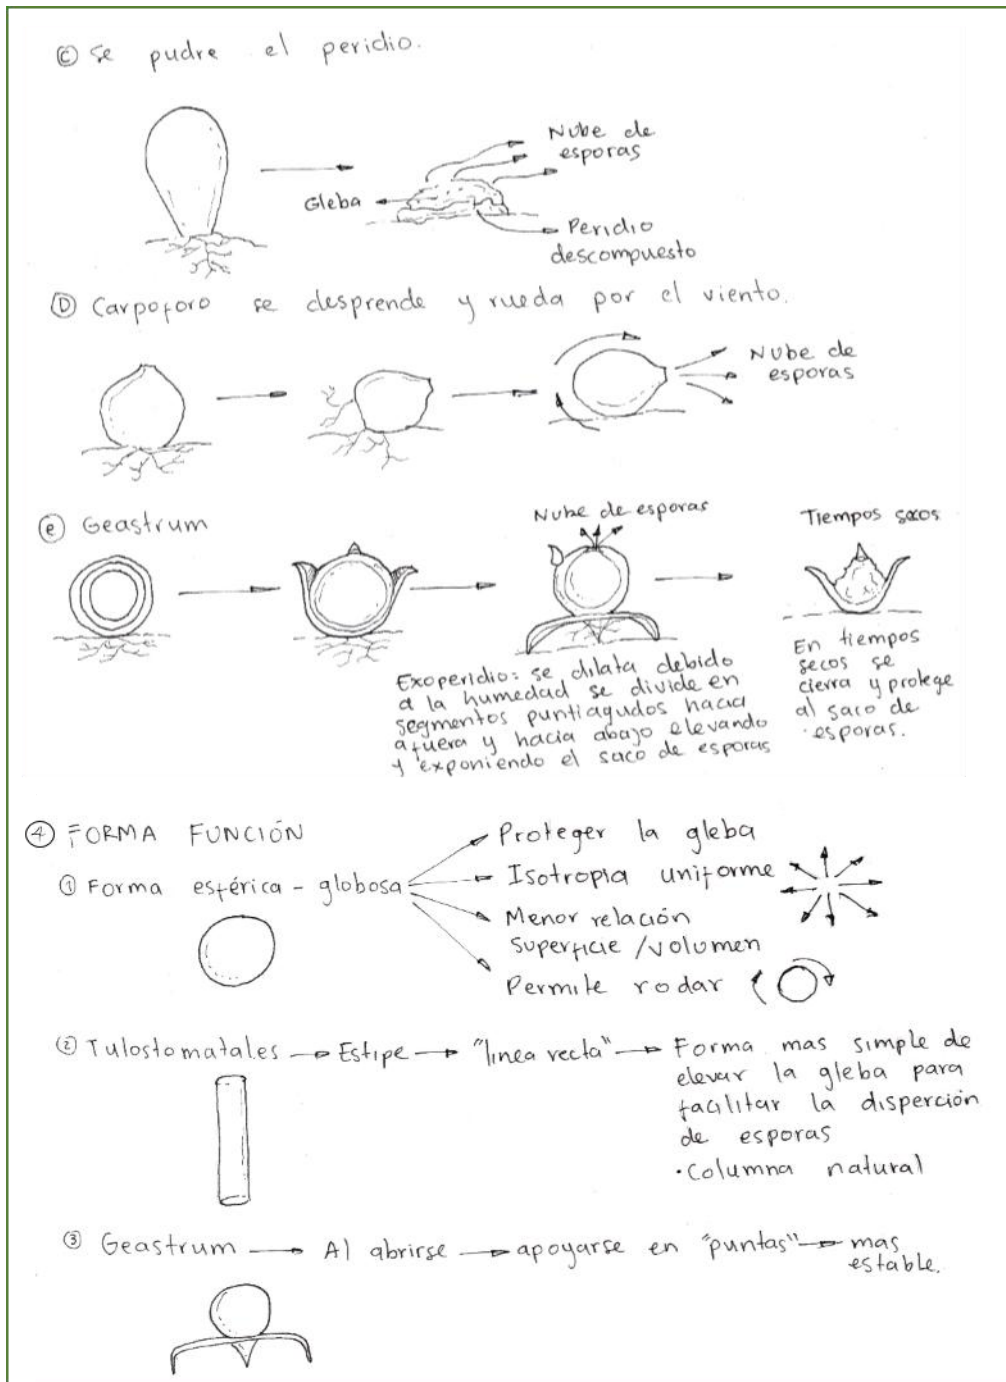 Ⓒ Se pudre el peridio.
Nube de
esporas
Gleba
Peridio
descompuesto
Ⓓ Carpoforo se desprende y rueda por el viento.
Nube de
esporas
ⓔ Geastrum
Nube de esporas
Tiempos secos
Exoperidio: se dilata debido
a la humedad se divide en
segmentos puntiagudos hacia
afuera y hacia abajo elevando
y exponiendo el saco de esporas
En tiempos
secos se
cierra y protege
al saco de
esporas.
④ FORMA FUNCIÓN
① Forma esférica - globosa
Proteger la gleba
Isotropia uniforme
Menor relación
superficie /volumen
Permite rodar
② Tulostomatales → Estipe → "linea recta" → Forma mas simple de
elevar la gleba para
facilitar la disperción
de esporas
·Columna natural
③ Geastrum → Al abrirse → apoyarse en "puntas" → mas
estable.